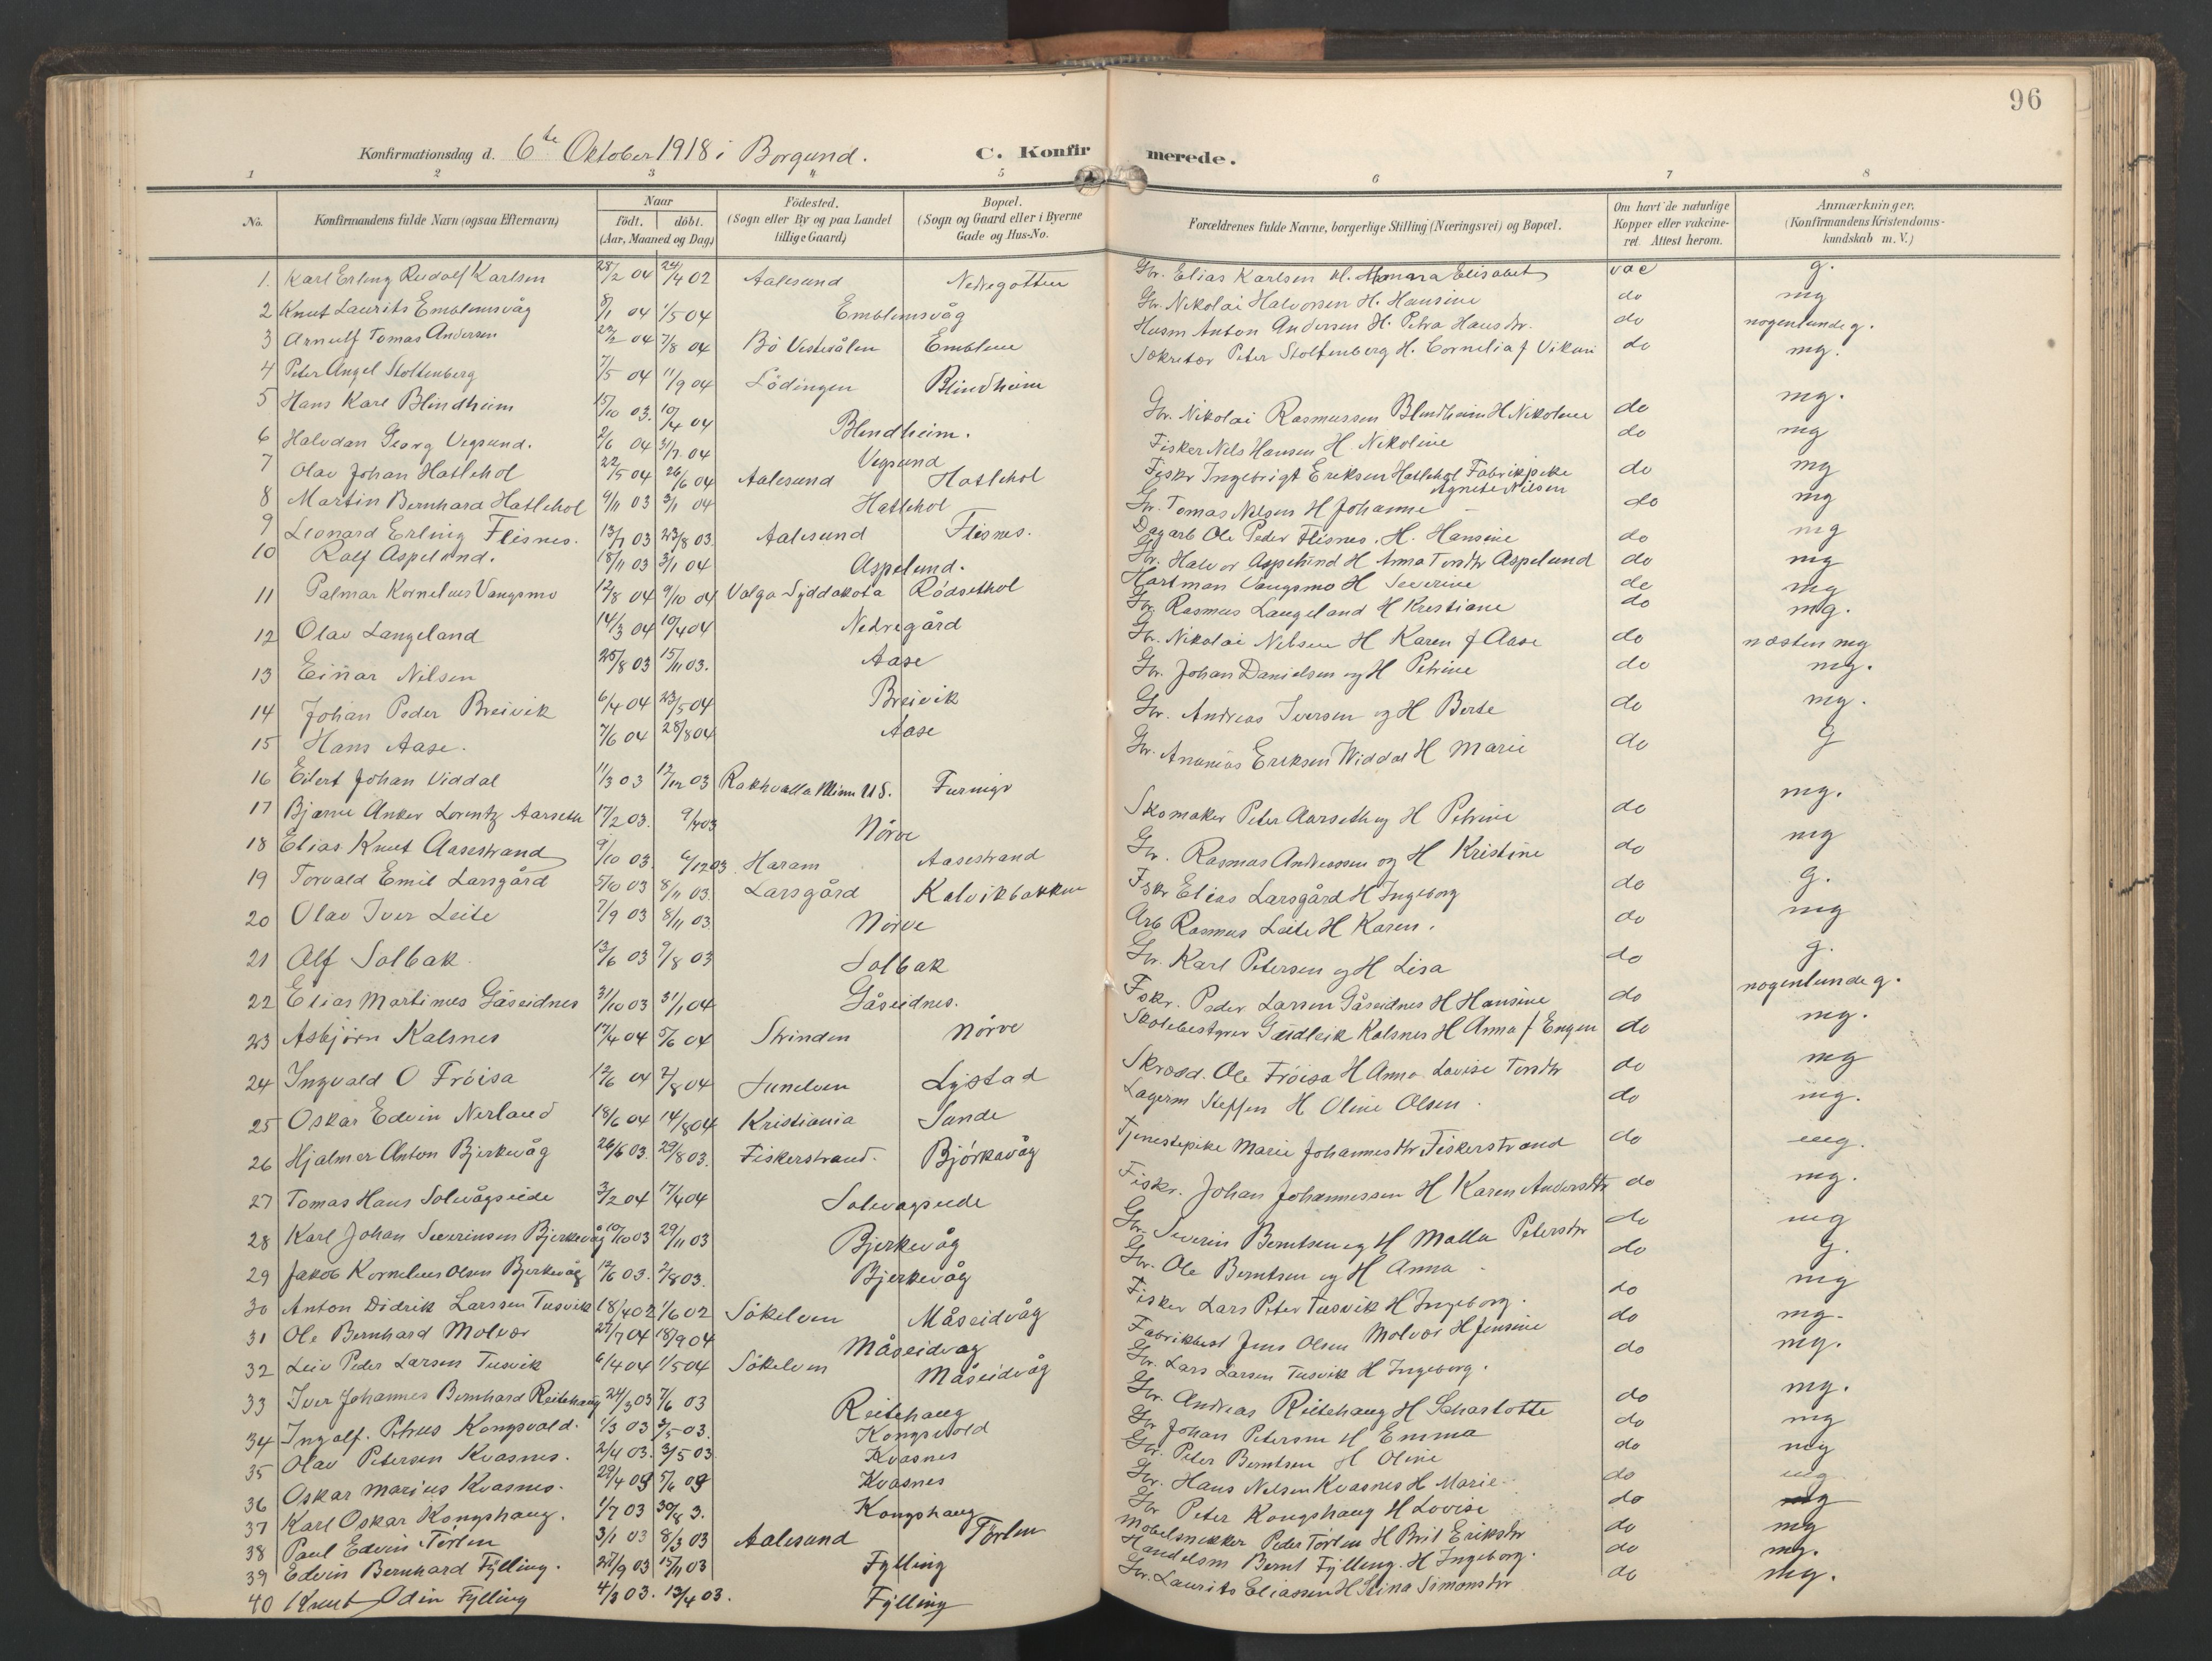 96
Konfirmationsdag d. 6te Oktober 1918 i Borgund. C. Konfirmerede.
1 2 3 4 5 6 7 8
No. Konfirmandens fulde Navn (ogsaa Efternavn) Naar født. døbt. (Aar, Maaned og Dag) Fødested. (Sogn eller By og paa Landet tillige Gaard) Bopæl. (Sogn og Gaard eller i Byerne Gade og Hus-No. Forældrenes fulde Navne, borgerlige Stilling (Næringsvei) og Bopæl. Om havt de naturlige Kopper eller vakcineret. Attest herom. Anmærkninger. (Konfirmandens Kristendomskundskab m. V.)
1. Karl Erling Rudolf Karlsen 28/2 04 24/4 02 Aalesund Nedregotten Gbr. Elias Karlsen H. Elisabet vac g.
2 Knut Laurits Emblemsvåg 8/1 04 1/5 04 Emblemsvåg Gbr. Nikolai Halvorsen H. Hansine do mg
3 Arnulf Tomas Andersen 22/2 04 7/8 04 Bö Vesterålen Emblem Husm Anton Andersen H. Petra Hansdtr. do nogenlunde g.
4 Peter Angel Stoltenberg 7/5 04 11/9 04 Lödingen Blindheim Sekretær Peter Stoltenberg H. Cornelia f Viken do mg.
5 Hans Karl Blindheim 15/10 03. 10/4 04 Blindheim. Gbr. Nikolai Rasmussen Blindheim H Nikoline do mg.
6 Halvdan Georg Vegsund. 2/6 04 31/7 04 Vegsund Fisker Nils Hansen H. Nikoline do mg
7 Olav Johan Hatlehol 22/5 04 26/6 04 Aalesund Hatlehol Fisker Ingebrigt Eriksen Hatlehol Fabrikpike Agnete Nilsen do mg
8 Martin Bernhard Hatlehol 9/11 03 3/1 04 Hatlehol Gbr. Tomas Nilsen H Johanne do mg
9 Leonard Erling Flisnes. 13/7 03 23/8 03. Aalesund Flisnes. Dagarb Ole Peder Flisnes. H. Hansine do mg
10 Rolf Aspelund. 18/11 03 3/1 04 Aspelund. Gbr. Halvor Aspelund H Anna Torsdtr Aspelund do mg
11 Palmar Kornelius Vangsmo 12/8 04 9/10 04 Volga Syddakota Rödsethol Hartman Vangsmo H Severine do mg
12 Olav Langeland 14/3 04 10/4 04 Nedregård Gbr Rasmus Langeland H Kristiane do mg.
13 Einar Nilsen 25/8 03 15/11 03. Aase Gbr. Nikolai Nilsen H Karen f Aase do næsten mg
14 Johan Peder Breivik 6/4 04 23/5 04 Breivik Gbr. Johan Danielsen og H Petrine do mg.
15 Hans Aase. 7/6 04 28/8 04 Aase Gbr. Andreas Iversen og H Berte do mg.
16 Eilert Johan Viddal 11/3 03 12/12 03 Rakhvalla Minn U S. Furmyr Gbr. Ananias Eriksen Widdal H Marie do g
17 Bjarne Anker Lorentz Aarseth 17/2 03. 9/4 03 Nörve Skomaker Peter Aarseth og H Petrine do mg.
18 Elias Knut Aasestrand 9/10 03. 6/12 03. Haram Aasestrand Gbr. Rasmus Andreassen og H Kristine do mg
19 Torvald Emil Larsgård 5/10 03 8/11 03. Larsgård Kalvikbakken Fskr Elias Larsgård H Ingeborg do g.
20 Olav Iver Leite 7/9 03 8/11 03. Nörve Arb Rasmus Leite H Karen. do mg
21 Alf Solbak 13/6 03 9/8 03 Solbak Gbr. Karl Petersen og H Lisa do g.
22 Elias Martinus Gåseidnes 31/10 03 31/1 04 Gåseidnes. Fskr. Peder Larsen Gåseidnes H Hansine do nogenlunde g.
23 Asbjörn Kalsnes 17/4 04 5/6 04 Strinden Nörve Skolebestyrer Gudleik Kalsnes H Anna f Engen do mg.
24 Ingvald O Fröisa 12/6 04 7/8 04 Sunelven Lystad Skræd. Ole Fröisa H Anna Lovise Torsdtr do mg
25 Oskar Edvin Nerland 18/6 04 14/8 04 Kristiania Sunde Lagerm Steffen H Oline Olsen. do mg.
26 Hjalmer Anton Bjerkevåg 26/6 03. 29/8 03. Fiskerstrand. Björkavåg Tjenestepike Marie Johannesdtr. Fiskerstrand do mg.
27 Tomas Hans Solevågseide 3/2 04 17/4 04 Solevagseide Fiskr. Johan Johannessen H Karen Andersdtr do mg.
28 Karl Johan Severinsen Bjerkevåg 10/10 03 29/11 03 Bjerkevåg Gbr. Severin Berntsen og H Malla Petersdtr do mg
29 Jakob Kornelius Olsen Bjerkevåg 12/6 03. 2/8 03. Bjerkevåg Gbr. Ole Berntsen og H Anna do g.
30 Anton Didrik Larssen Tusvik 18/4 02 1/6 02 Sökelven Måseidvåg Fisker Lars Peter Tusvik H Ingeborg. do mg
31 Ole Bernhard Molvær 27/7 04 18/9 04 Måseidvag Fabrikbest Jens Olsen Molvær H Jensine do mg.
32 Leiv Peder Larsen Tusvik 6/4 04 1/5 04 Sökelven Måseidvåg Gbr. Lars Larsen Tusvik H Ingeborg. do mg.
33 Iver Johannes Bernhard Reitehaug 24/3 03 7/6 03 Reitehaug Gbr. Andreas Reitehaug H Scharlotte do mg.
34 Ingolf. Petrus Kongsvold. 1/3 03 3/5 03. Kongsvold Gbr Johan Petersen H Emma do mg
35 Olav Petersen Kvasnes. 2/4 03. 3/5 03 Kvasnes Gbr. Peter Berntsen H Oline do mg
36 Oskar Marius Kvasnes. 29/4 03 5/6 03 Kvasnes Gbr. Hans Nelsen Kvasnes H Marie. do mg
37 Karl Oskar Kongshaug. 1/7 03 30/8 3. Kongshaug Gbr Peter Kongshaug H Lovise do mg
38 Paul Edvin Tørlen 3/1 03 8/3 03 Aalesund Tørlen Møbelsnekker Peder Törlen H Brit Eriksdtr do mg
39 Edvin Bernhard Fylling. 27/9 03 15/11 03 Fylling Handelsm Bernt Fylling. H Ingeborg. do mg.
40 Knut Odin Fylling 4/3 03. 13/4 03. Fylling Gbr. Laurits Eliassen H Stina Simonsdtr do mg.